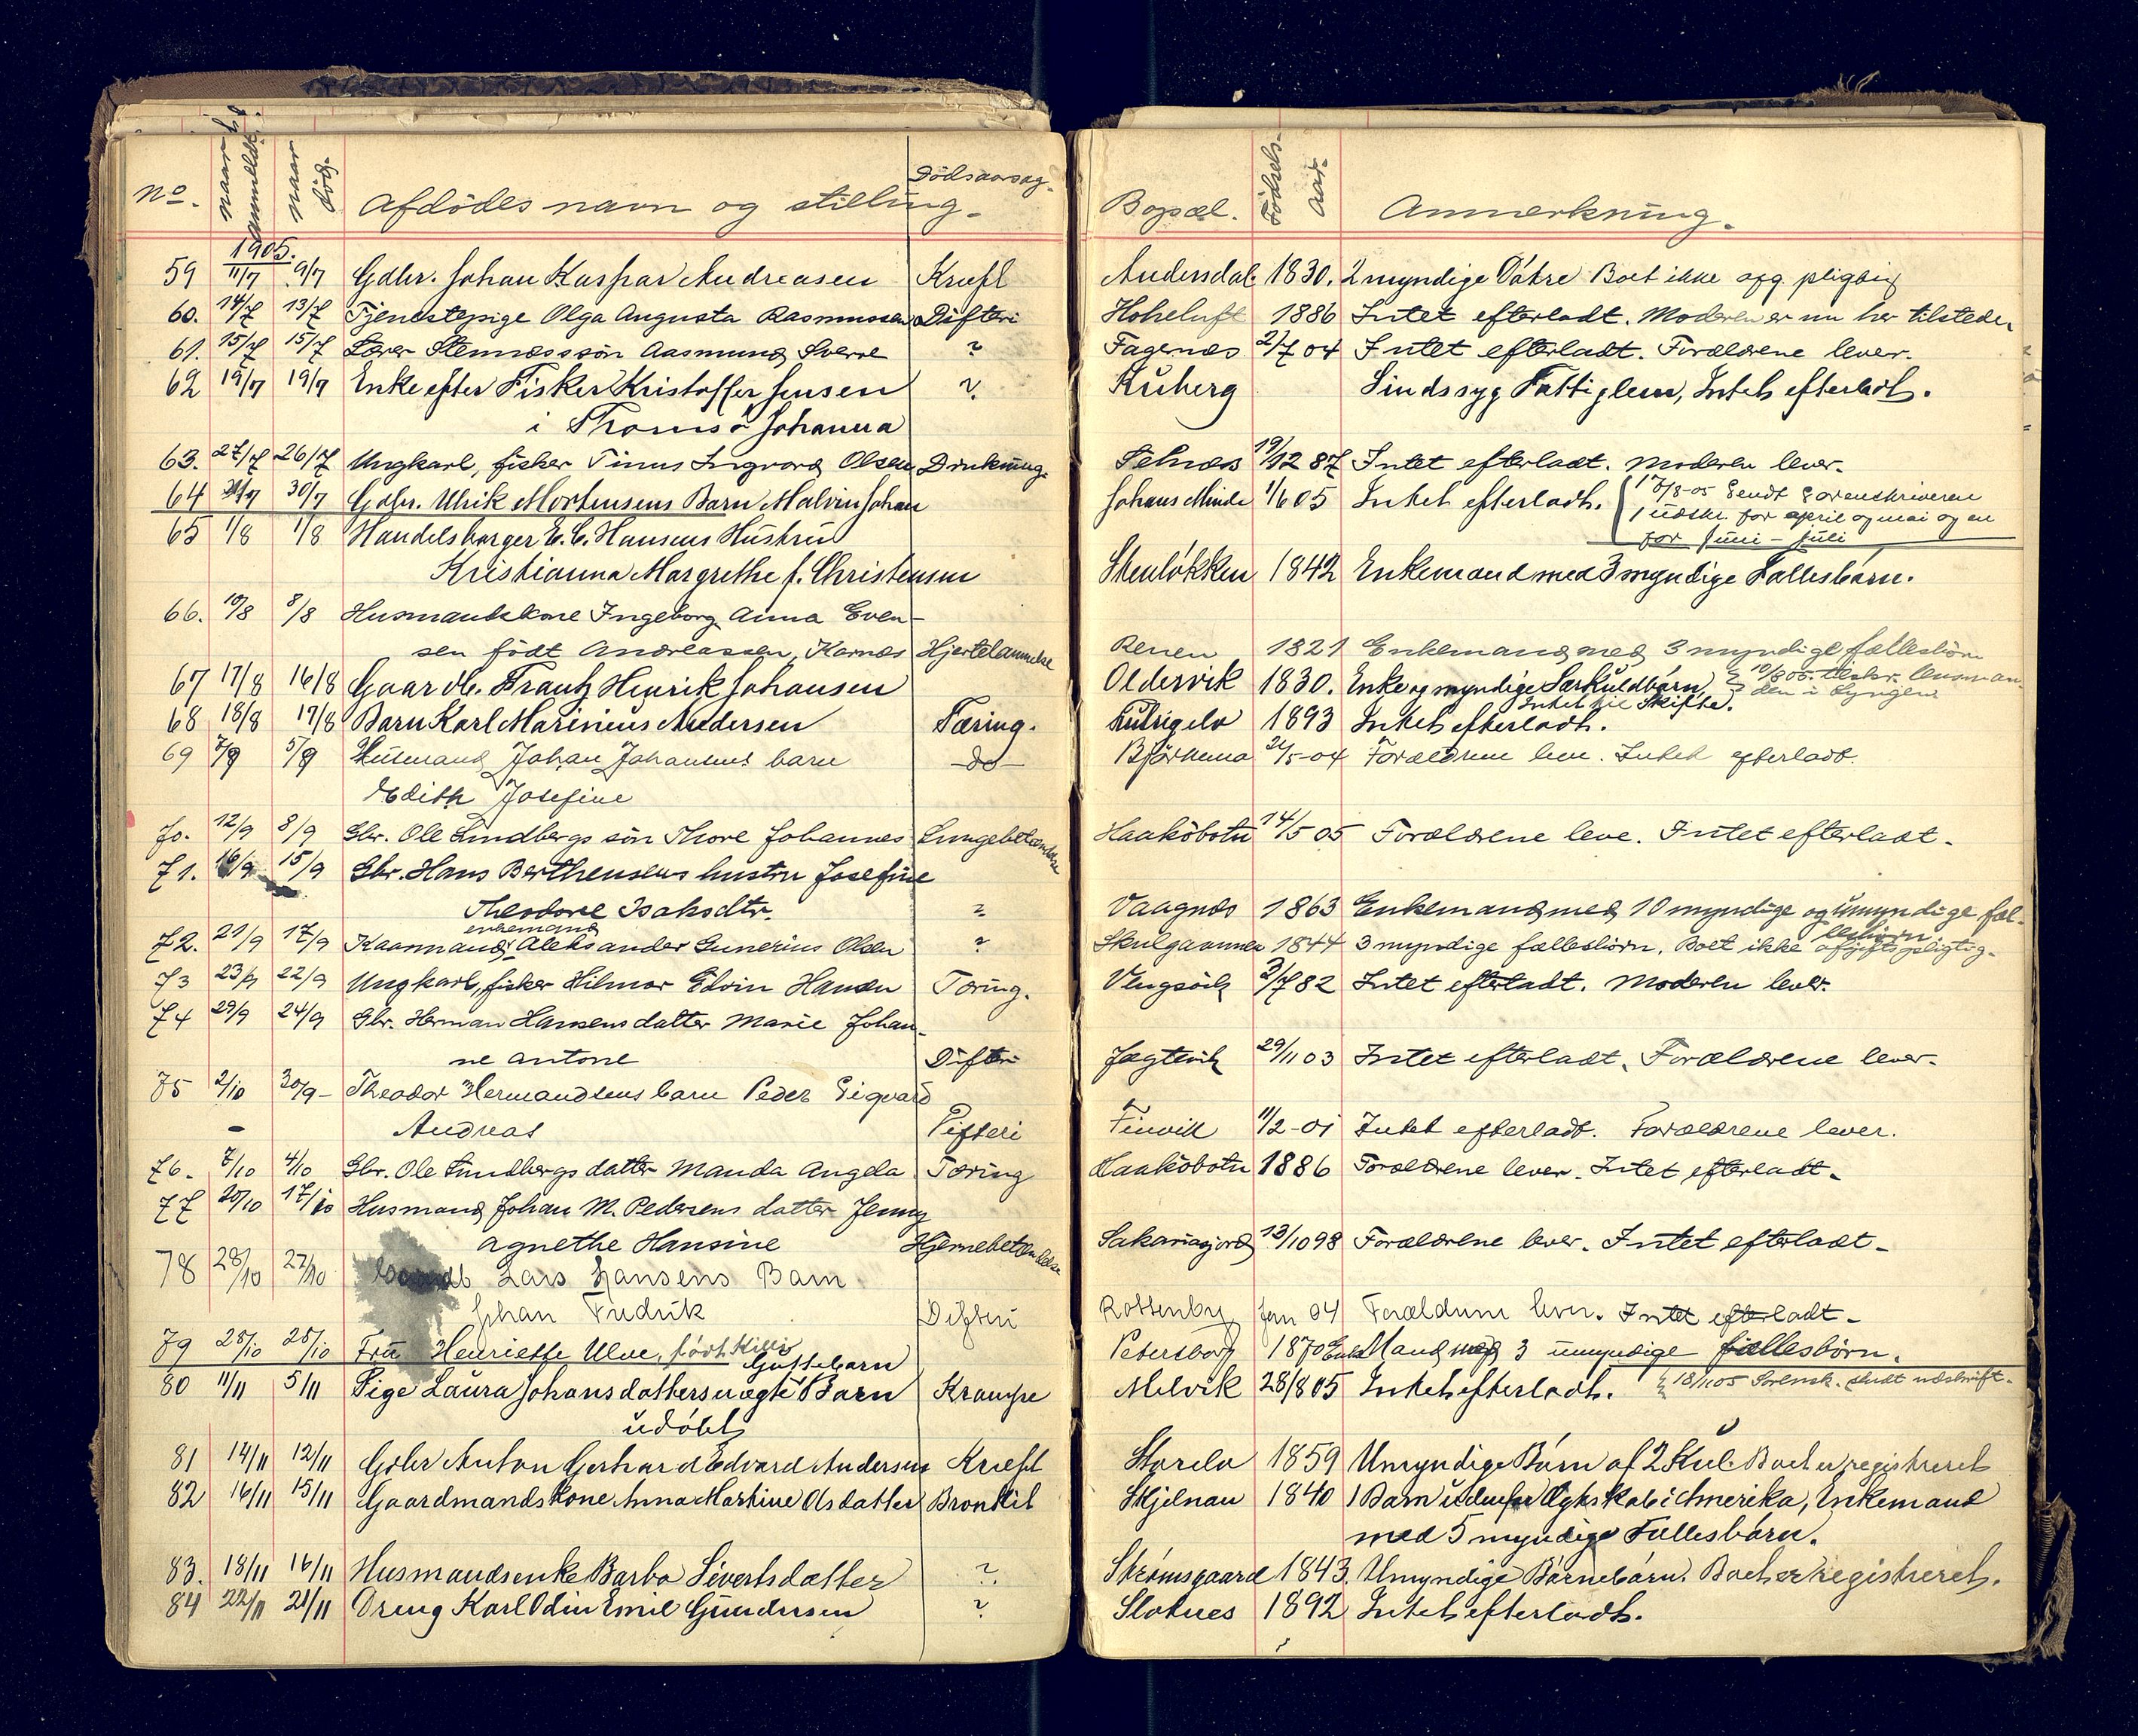 No. naar anmeldt. naar død. Afdødes navn og stilling. Dødsaarsag. Bopæl. Fødsels-Aar. Anmerkning.
1905.
59 11/7 9/7 Gdbr. Johan Kaspar Andreasen Kræft Andersdal 1830. 2 myndige Døtre Boet ikke afg. pligtig
60. 14/7 13/7 Tjenestepige Olga Augusta Rasmussen Difteri Hoheluft 1886 Intet efterladt. Moderen er nu her tilstede
61. 15/7 15/7 Lærer Stennæs søn Aasmund Sverre ? Fagernæs 2/7 04 Intet efterladt. Forældrene lever.
62 19/7 19/7 Enke efter Fisker Kristoffer Jensen ? Kuberg Sindssyg Fattiglem, Intet efterladt.
i Tromsø Johanna
63. 27/7 26/7 Ungkarl, fisker Tinus Ingvard Olsen Drukning. Selnæs 19/12 87 Intet efterladt. Moderen lever.
64 31/7 30/7 Gdbr. Ulrik Mortensens Barn Malvin Johan Johans Minde 1/6 05 Intet efterladt. 17/8-05 Sendt Sorenskriveren
1 udskr. for april og mai og en
for Juni - Juli
65 1/8 1/8 Handelsborger E. C. Hansens Hustru
Kristianna Margrethe f. Christensen Stenløkken 1842 Enkemand med 3 myndige Fællesbørn.
66. 10/8 8/8 Husmandskone Ingeborg Anna Even-
sen født Andreassen, Karnes Hjertelammelse Renen 1821 Enkemand med 3 myndige fællesbörn
67 17/8 16/8 Gaardb. Frantz Henrik Johansen Oldervik 1830. Enke og myndige Særkuldbørn,
Intet til Skifte.
68 18/8 17/8 Barn Karl Marinius Andersen Tæring. 1893 Intet efterladt.
69 7/9 5/9 Husmand Johan Johansens barn do 24/5-04 Forældrene leve. Intet efterladt.
Edith Josefine
70. 12/9 8/9 Gbr. Ole Lindbergs sön Thore Johannes Lungebetændelse Haaköbotn 14/5 05 Forældrene leve. Intet efterladt.
71. 16/9 15/9 Gbr. Hans Berthensens hustru Josefine
Theodore Isaksdtr. ? Vaagnæs 1863 Enkemand med 10 myndige og umyndige fæl-
lesbörn
enkemand
72. 21/9 17/9 Kaarmand Aleksander Gunerius Olsen ? Skulgammen 1844 3 myndige fællesbörn. Boet ikke afgiftspligtig.
73 23/9 22/9 Ungkarl, fisker Hilmar Edvin Hansen Tæring. Vengsöy 3/7 82 Intet efterladt. Moderen lever.
74 29/9 24/9 Gbr. Herman Hansens datter Marie Johan-
ne Antone Difteri Jægtvik 29/11 03 Intet efterladt. Forældrene lever.
75 2/10 30/9 Theodor Hermandsens barn Peder Sigvard
Andreas Difteri Finvik 11/2-01 Intet efterladt. Forældrene lever.
76. 7/10 4/10 Gbr. Ole Lindbergs datter Manda Angela Tæring Haaköbotn 1886 Forældrene lever. Intet efterladt.
77 20/10 17/10 Husmand Johan M. Pedersens datter Jenny
Agnethe Hansine Hjernebetændelse Sakariasjord 13/10 98 Forældrene lever. Intet efterladt.
78 28/10 27/10 Lars Hansens Barn
Johan Fredrik Difteri Jan 04 Forældrene lever. Intet efterladt.
79 28/10 25/10 Fru Henriette Ulve, født Petersborg 1870 Enkemand med 3 umyndige fællesbørn.
Guttebarn
80 11/11 5/11 Pige Laura Johansdatters uægte Barn Krampe Melvik 28/8 05 Intet efterladt. 18/11 05 Sorensk. sendt udskrift.
udøbt
81 14/11 12/11 Gdbr Anton Gerhard Edvard Andersen Kræft Storelv 1859 Umyndige Børn af 2 Kul. Boet er registreret
82 16/11 15/11 Gaardmandskone Anna Martine Olsdatter Bronkit Skjelnan 1840 1 Barn udenfor Ægteskab i Amerika, Enkemand
med 5 myndige Fællesbørn.
83. 18/11 16/11 Husmandsenke Barbo Sivertsdatter ? Strømsgaard 1843. Umyndige Børnebørn. Boet er registreret.
84 22/11 21/11 Dreng Karl Odin Emil Gundersen ? Slotnes 1892 Intet efterladt.